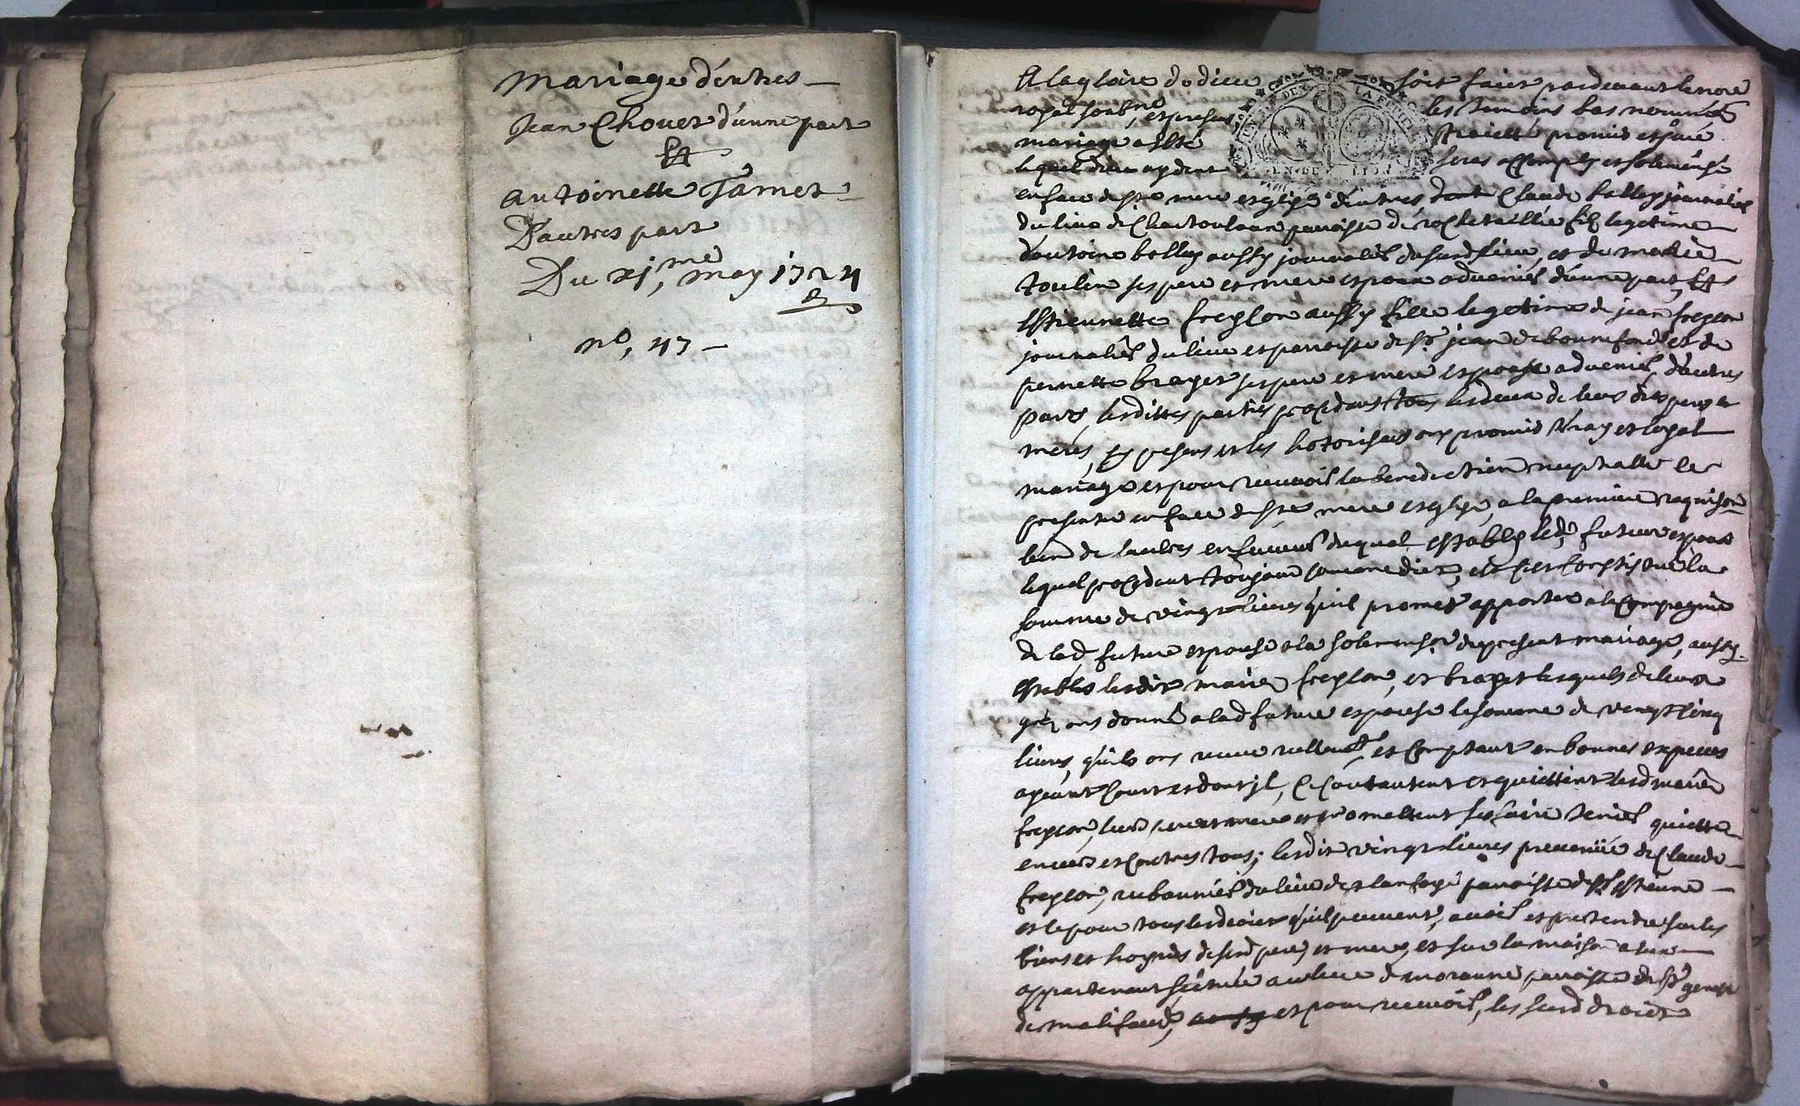 Mariage d'entres
Jean Chovet d'une part
Et
antoinette Jamet
D'autres part
Du xj,me may 1724
no, 47
A la gloire de dieu soit fait pardevant le nore
royal soubne, et presens les temoins bas nommés
mariage a esté traicté promis et juré
lequel dieu aydant seras accomply et solemnisé
en face de ste mere esglise d'entres Claude belley journalier
du lieu de parroisse de rochetaillée fils legetime
d'antoine belley aussy journalier dususd lieu, et de
toulin ses pere et mere espoux advenir d'une part, Et
Estiennette freylon aussy fille legetime de jean freycon
journalier du lieu et parroisse de st jean de bonnefond et de
pernette brayer ses pere et mere espouse advenir, d'autres
part, lesdittes parties procedans les deux de leurs dits pere et
meres, presens et les hotorisans ont promis vray et loyal
mariage et pour recevoir la benediction nuptialle se
presenter en face de ste mere esglise, a la premiere requisition
l'un de l'autres en faveur duquel estably led, futur espoux
lequel procedant toujour comme dict, c'est constitué la
somme de vingt livres qu'il promet apporter a la Compagnie
de lad future espouse a la solemnisé du present mariage, aussy
establis lesdit mariés freylon, et brayer lesquels de leurs
grés ont donné a lad future espouse la somme de vingt cinq
livres, qu'ils ont receue reellemt, et Comptant en bonnes especes
ayeant Cours et dont jl, Contantent et quiettent lesd mariés
freycon, leurs pere et mere et promettent les faire tenir quiette
envers et Contres tous; lesdit vingt livres provenüe de Claude
freycon, rubannier du lieu de parroisse de st Estienne
et le pour tous les droict qu'il peuvent, avoir et pretendre sur les
biens et hoyries de sesd pere et mere, et sur la maison a luy
appartenant scituée au lieu de parroisse de st genest
de malifaux, et pour recevoir, les susd droict